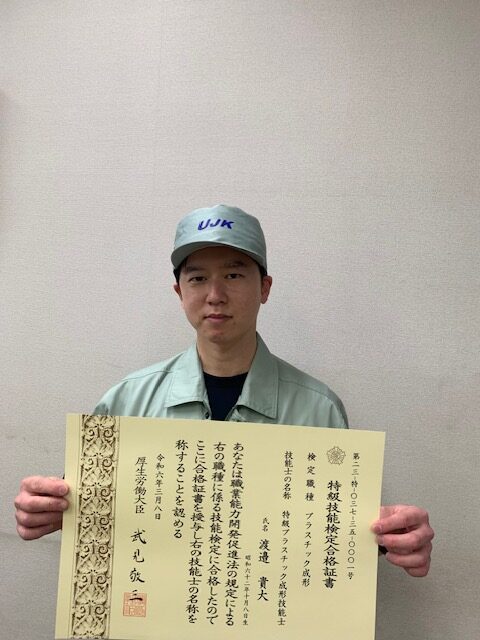 UJK
第二三-特-〇三七-三五-〇〇〇一号
特級技能検定合格証書
検定職種 プラスチック成形
技能士の名称 特級プラスチック成形技能士
氏名 渡邉 貴大
昭和六十二年十月八日生
あなたは職業能力開発促進法の規定による
右の職種に係る技能検定に合格したので
ここに合格証書を授与し右の技能士の名称を
称することを認める
令和六年三月八日
厚生労働大臣 武見敬三